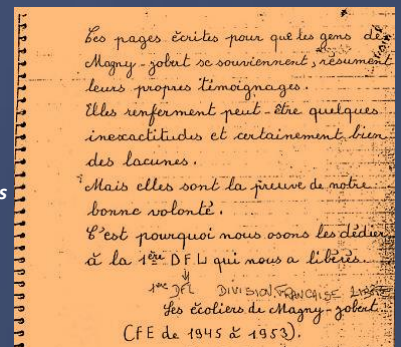 Ces pages écrites pour que les gens de
Magny-jobert se souviennent, résument
leurs propres témoignages.
Elles renferment peut-être quelques
inexactitudes et certainement bien
des lacunes.
Mais elles sont la preuve de notre
bonne volonté.
C'est pourquoi nous osons les dédier
à la 1ère DFL qui nous a libérés.
1ère DFL DIVISION FRANCAISE LIBRE
Les écoliers de Magny-jobert
(CFE de 1945 à 1953).
s